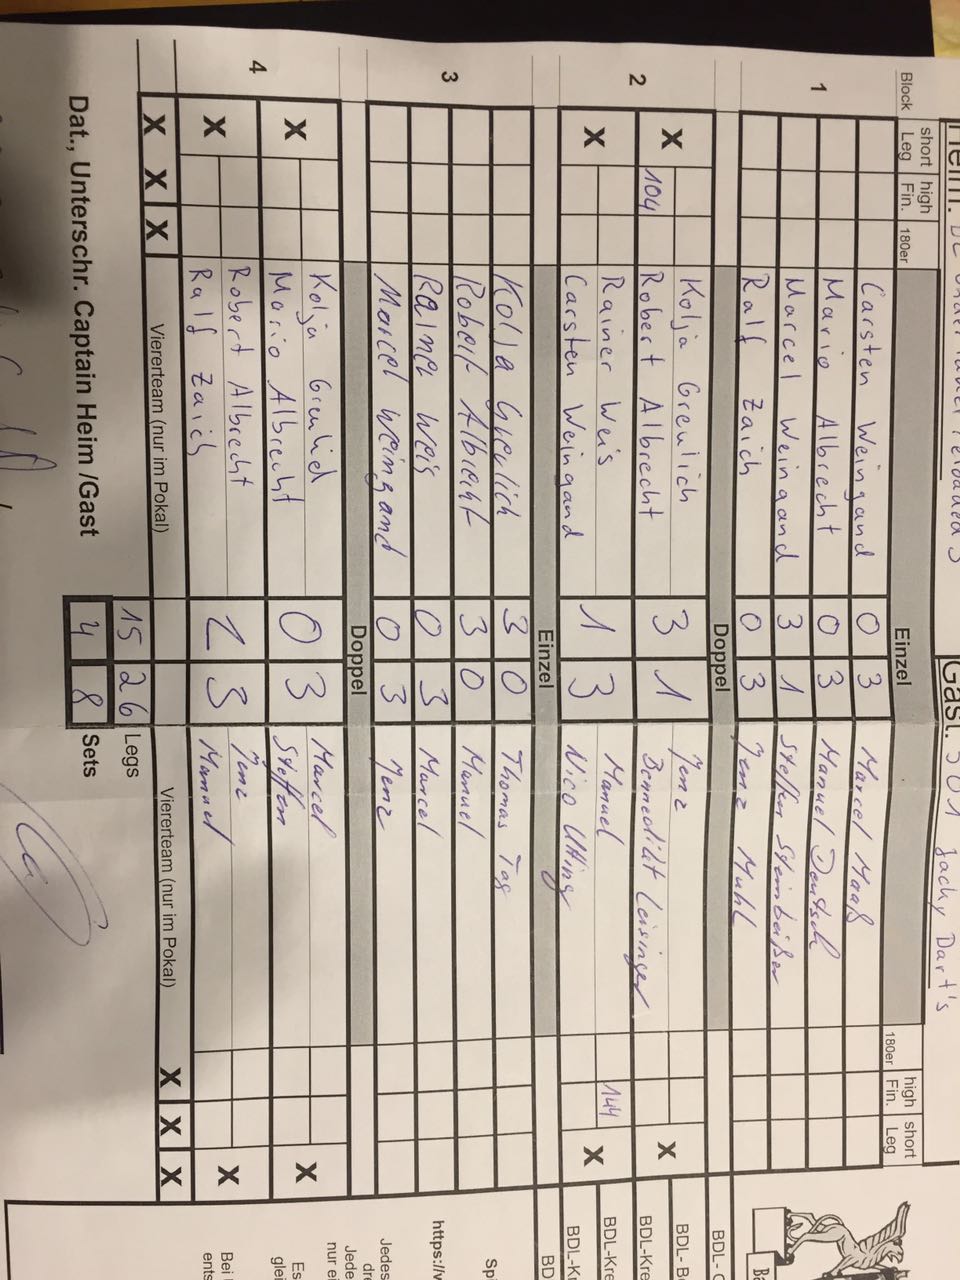 Heim:
Gast: 501 Jacky Dart's
Block short Leg high Fin. 180er Einzel 180er high Fin. short Leg
1 Carsten Weingand 0 3 Marcel Maaß
Mario Albrecht 0 3 Manuel Deutsch
Marcel Weingand 3 1 Steffen Steinbeißer
Ralf Zaich 0 3 Jens Muhl
Doppel BDL-
2 X Kolja Greulich 3 1 Jens X BDL-
Robert Albrecht 104 Bennedikt Leisinger BDL-Kre
X Rainer Weis 1 3 Manuel 144 X BDL-Kre
Carsten Weingand Nico Utting BDL-Kr
Einzel BD
3 Kolja Greulich 3 0 Thomas Tag Spi
Robert Albrecht 3 0 Manuel
Rainer Weis 0 3 Marcel https://
Marcel Weingand 0 3 Jens Jedes
Doppel
4 X Kolja Greulich 0 3 Marcel X nur ei
Mario Albrecht Steffen Es
X Robert Albrecht 2 3 Jens X gleic
Ralf Zaich Manuel Bei
X X X Viererteam (nur im Pokal) Viererteam (nur im Pokal) X X X
15 26 Legs
Dat., Unterschr. Captain Heim /Gast 4 8 Sets